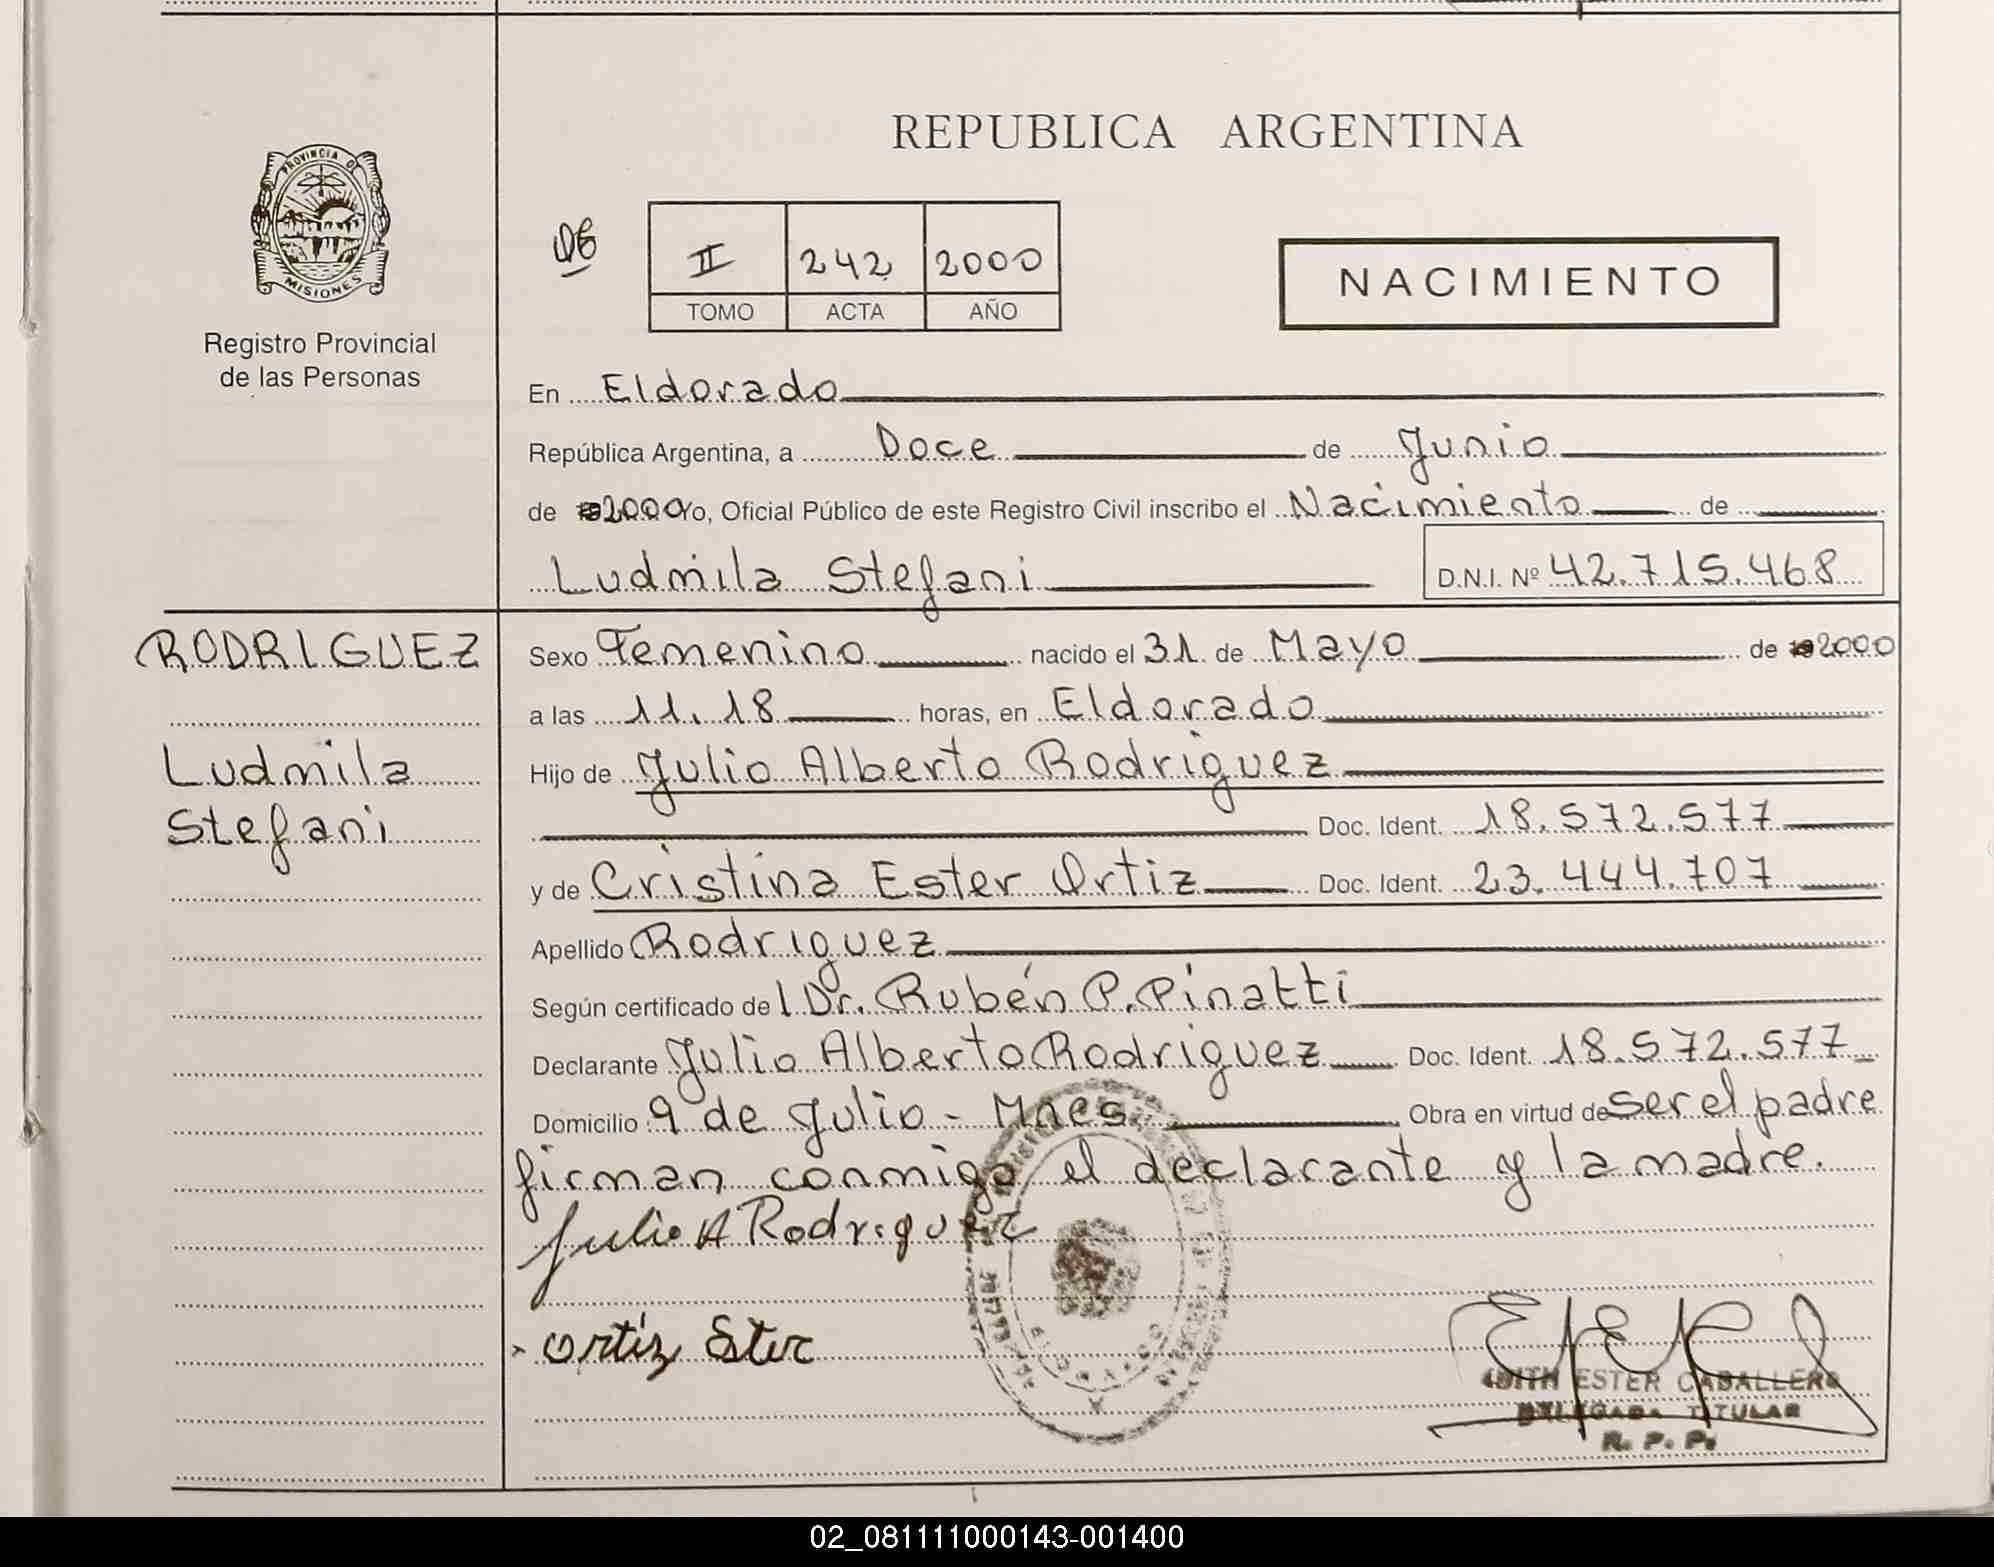 REPUBLICA ARGENTINA
PROVINCIA DE
MISIONES
Registro Provincial
de las Personas
II 242 2000
TOMO ACTA AÑO
NACIMIENTO
En Eldorado
República Argentina, a Doce de Junio
de 2000 Yo, Oficial Público de este Registro Civil inscribo el Nacimiento de
Ludmila Stefani D.N.I. Nº 42.715.468
RODRIGUEZ
Ludmila
Stefani
Sexo Femenino nacido el 31 de Mayo de 2000
a las 11.18 horas, en Eldorado
Hijo de Julio Alberto Rodriguez
Doc. Ident. 18.572.577
y de Cristina Ester Ortiz Doc. Ident. 23.444.707
Apellido Rodriguez
Según certificado de l Dr. Rubén P. Pinatti
Declarante Julio Alberto Rodriguez Doc. Ident. 18.572.577
Domicilio 9 de Julio - Mnes Obra en virtud de ser el padre
firman conmigo el declarante y la madre.
Julio A Rodriguez
Ortiz Ster
EDITH ESTER CABALLERO
DELEGADA TITULAR
R. P. P.
02_081111000143-001400